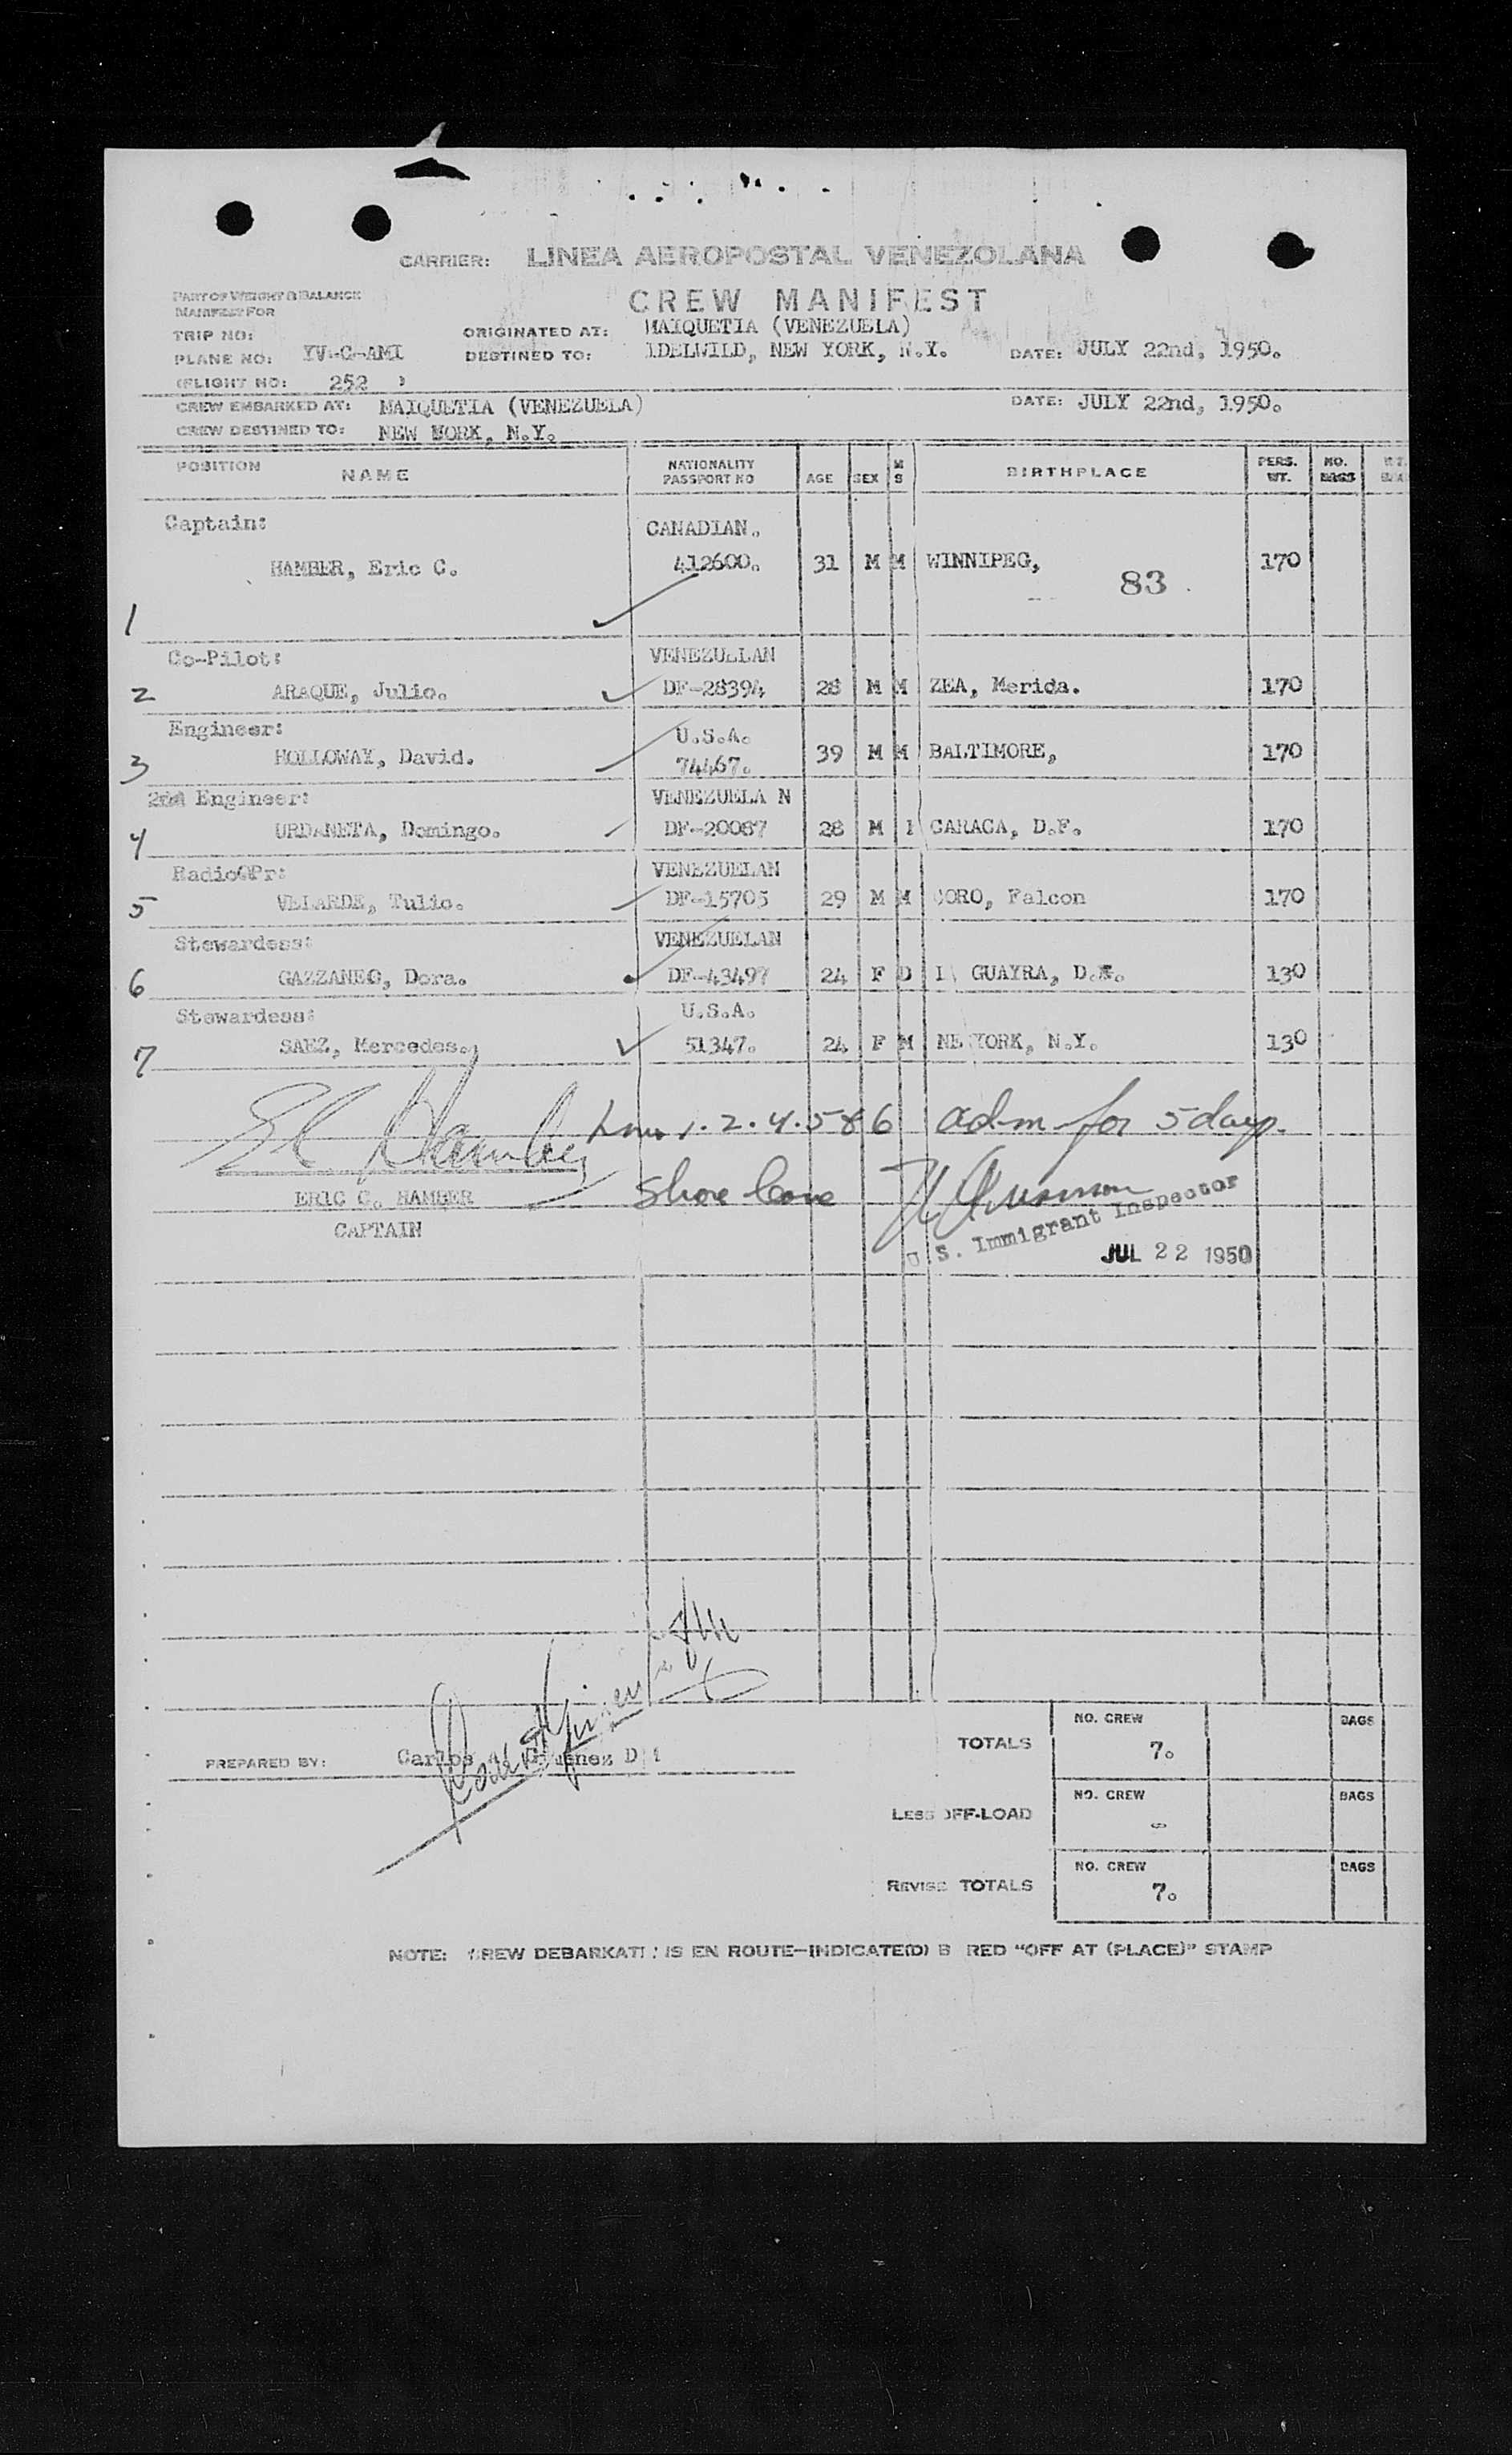 CARRIER: LINEA AEROPOSTAL VENEZOLANA
PART OF WEIGHT & BALANCE
MANIFEST FOR
CREW MANIFEST
TRIP NO:
ORIGINATED AT: MAIQUETIA (VENEZUELA)
PLANE NO: YV-C-AMI
DESTINED TO: IDELWILD, NEW YORK, N.Y.
DATE: JULY 22nd, 1950.
(FLIGHT NO: 252 )
CREW EMBARKED AT: MAIQUETIA (VENEZUELA)
DATE: JULY 22nd, 1950.
CREW DESTINED TO: NEW YORK, N.Y.
POSITION NAME NATIONALITY PASSPORT NO AGE SEX M S BIRTHPLACE PERS. WT. NO. BAGS WT.
Captain: CANADIAN.
HAMBER, Eric C. 412600. 31 M M WINNIPEG, 170
83
1
Co-Pilot: VENEZUELAN
2 ARAQUE, Julio. DF-28394 28 M M ZEA, Merida. 170
Engineer: U.S.A.
3 HOLLOWAY, David. 74467. 39 M M BALTIMORE, 170
2nd Engineer: VENEZUELA N
4 URDANETA, Domingo. DF-20067 28 M CARACA, D.F. 170
RadioOPr: VENEZUELAN
5 VELARDE, Tulio. DF-15705 29 M M CORO, Falcon 170
Stewardess: VENEZUELAN
6 GAZZANEO, Dora. DF-43497 24 F D GUAYRA, D.F. 130
Stewardess: U.S.A.
7 SAEZ, Mercedes. 51347. 24 F M NE YORK, N.Y. 130
E C Hamber
1. 2. 4. 5 & 6 adm for 5 days.
shore leave
ERIC C. HAMBER
CAPTAIN
U.S. Immigrant Inspector
JUL 22 1950
TOTALS NO. CREW 7. BAGS
PREPARED BY: Carlos
LESS OFF-LOAD NO. CREW - BAGS
REVISE TOTALS NO. CREW 7. BAGS
NOTE: CREW DEBARKATI IS EN ROUTE—INDICATE(D) B RED "OFF AT (PLACE)" STAMP